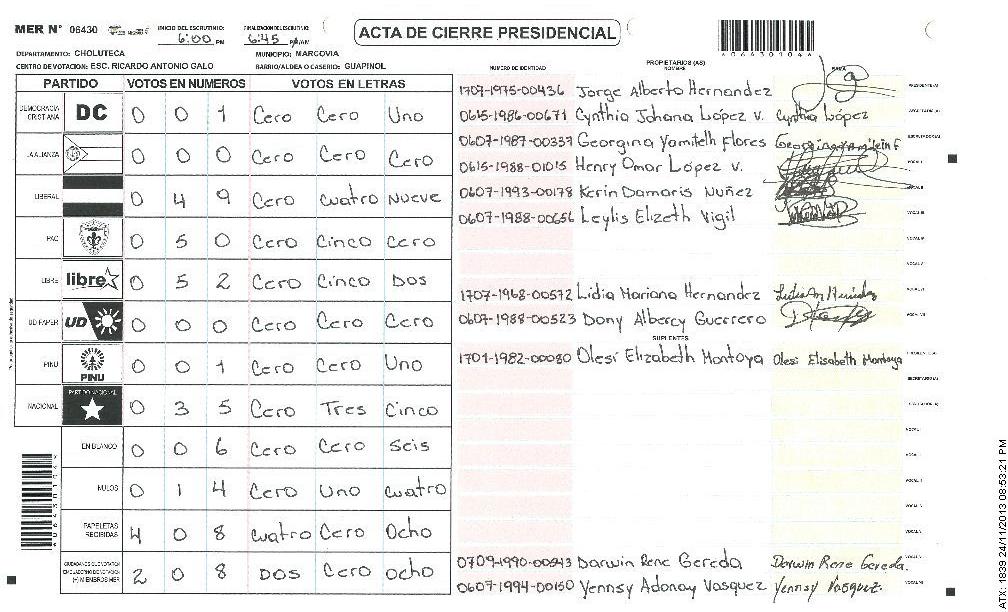 MER N° 06430 INICIO DEL ESCRUTINIO: 6:00 PM FINALIZACION DEL ESCRUTINIO: 6:45 PM/AM
ACTA DE CIERRE PRESIDENCIAL
DEPARTAMENTO: CHOLUTECA MUNICIPIO: MARCOVIA
CENTRO DE VOTACION: ESC. RICARDO ANTONIO GALO BARRIO/ALDEA O CASERIO: GUAPINOL
PARTIDO VOTOS EN NUMEROS VOTOS EN LETRAS
DEMOCRACIA CRISTIANA DC 0 0 1 Cero Cero Uno
LA ALIANZA 0 0 0 Cero Cero Cero
LIBERAL 0 4 9 Cero Cuatro Nueve
PAC 0 5 0 Cero Cinco Cero
LIBRE libre 0 5 2 Cero Cinco Dos
UD FAPER UD 0 0 0 Cero Cero Cero
PINU PINU 0 0 1 Cero Cero Uno
NACIONAL PARTIDO NACIONAL 0 3 5 Cero Tres Cinco
EN BLANCO 0 0 6 Cero Cero Seis
NULOS 0 1 4 Cero Uno Cuatro
PAPELETAS RECIBIDAS 4 0 8 Cuatro Cero Ocho
CIUDADANOS QUE VOTARON 2 0 8 Dos Cero Ocho
NUMERO DE IDENTIDAD PROPIETARIOS (AS) NOMBRE FIRMA
1707-1975-00436 Jorge Alberto Hernandez PRESIDENTE(A)
0615-1986-00671 Cynthia Johana López v. Cynthia López SECRETARIO(A)
0607-1987-00337 Georgina Yamileth Flores Georgina Yamileth F ESCRUTADOR(A)
0615-1988-01015 Henry Omar López v. VOCAL I
0607-1993-00178 Kerin Damaris Nuñez VOCAL II
0607-1988-00656 Leylis Elizeth Vigil VOCAL III
VOCAL IV
VOCAL V
1707-1968-00572 Lidia Mariana Hernandez VOCAL VI
0607-1988-00523 Dony Albercy Guerrero VOCAL VII
SUPLENTES
1701-1982-00080 Olesi Elizabeth Montoya Olesi Elisabeth Montoya
SECRETARIO(A)
0709-1990-00943 Darwin Rene Gereda Darwin Rene Gereda.
0607-1994-00150 Yennsy Adonay Vasquez Yennsy Vasquez.
ATX: 1839 24/11/2013 08:53:21 PM